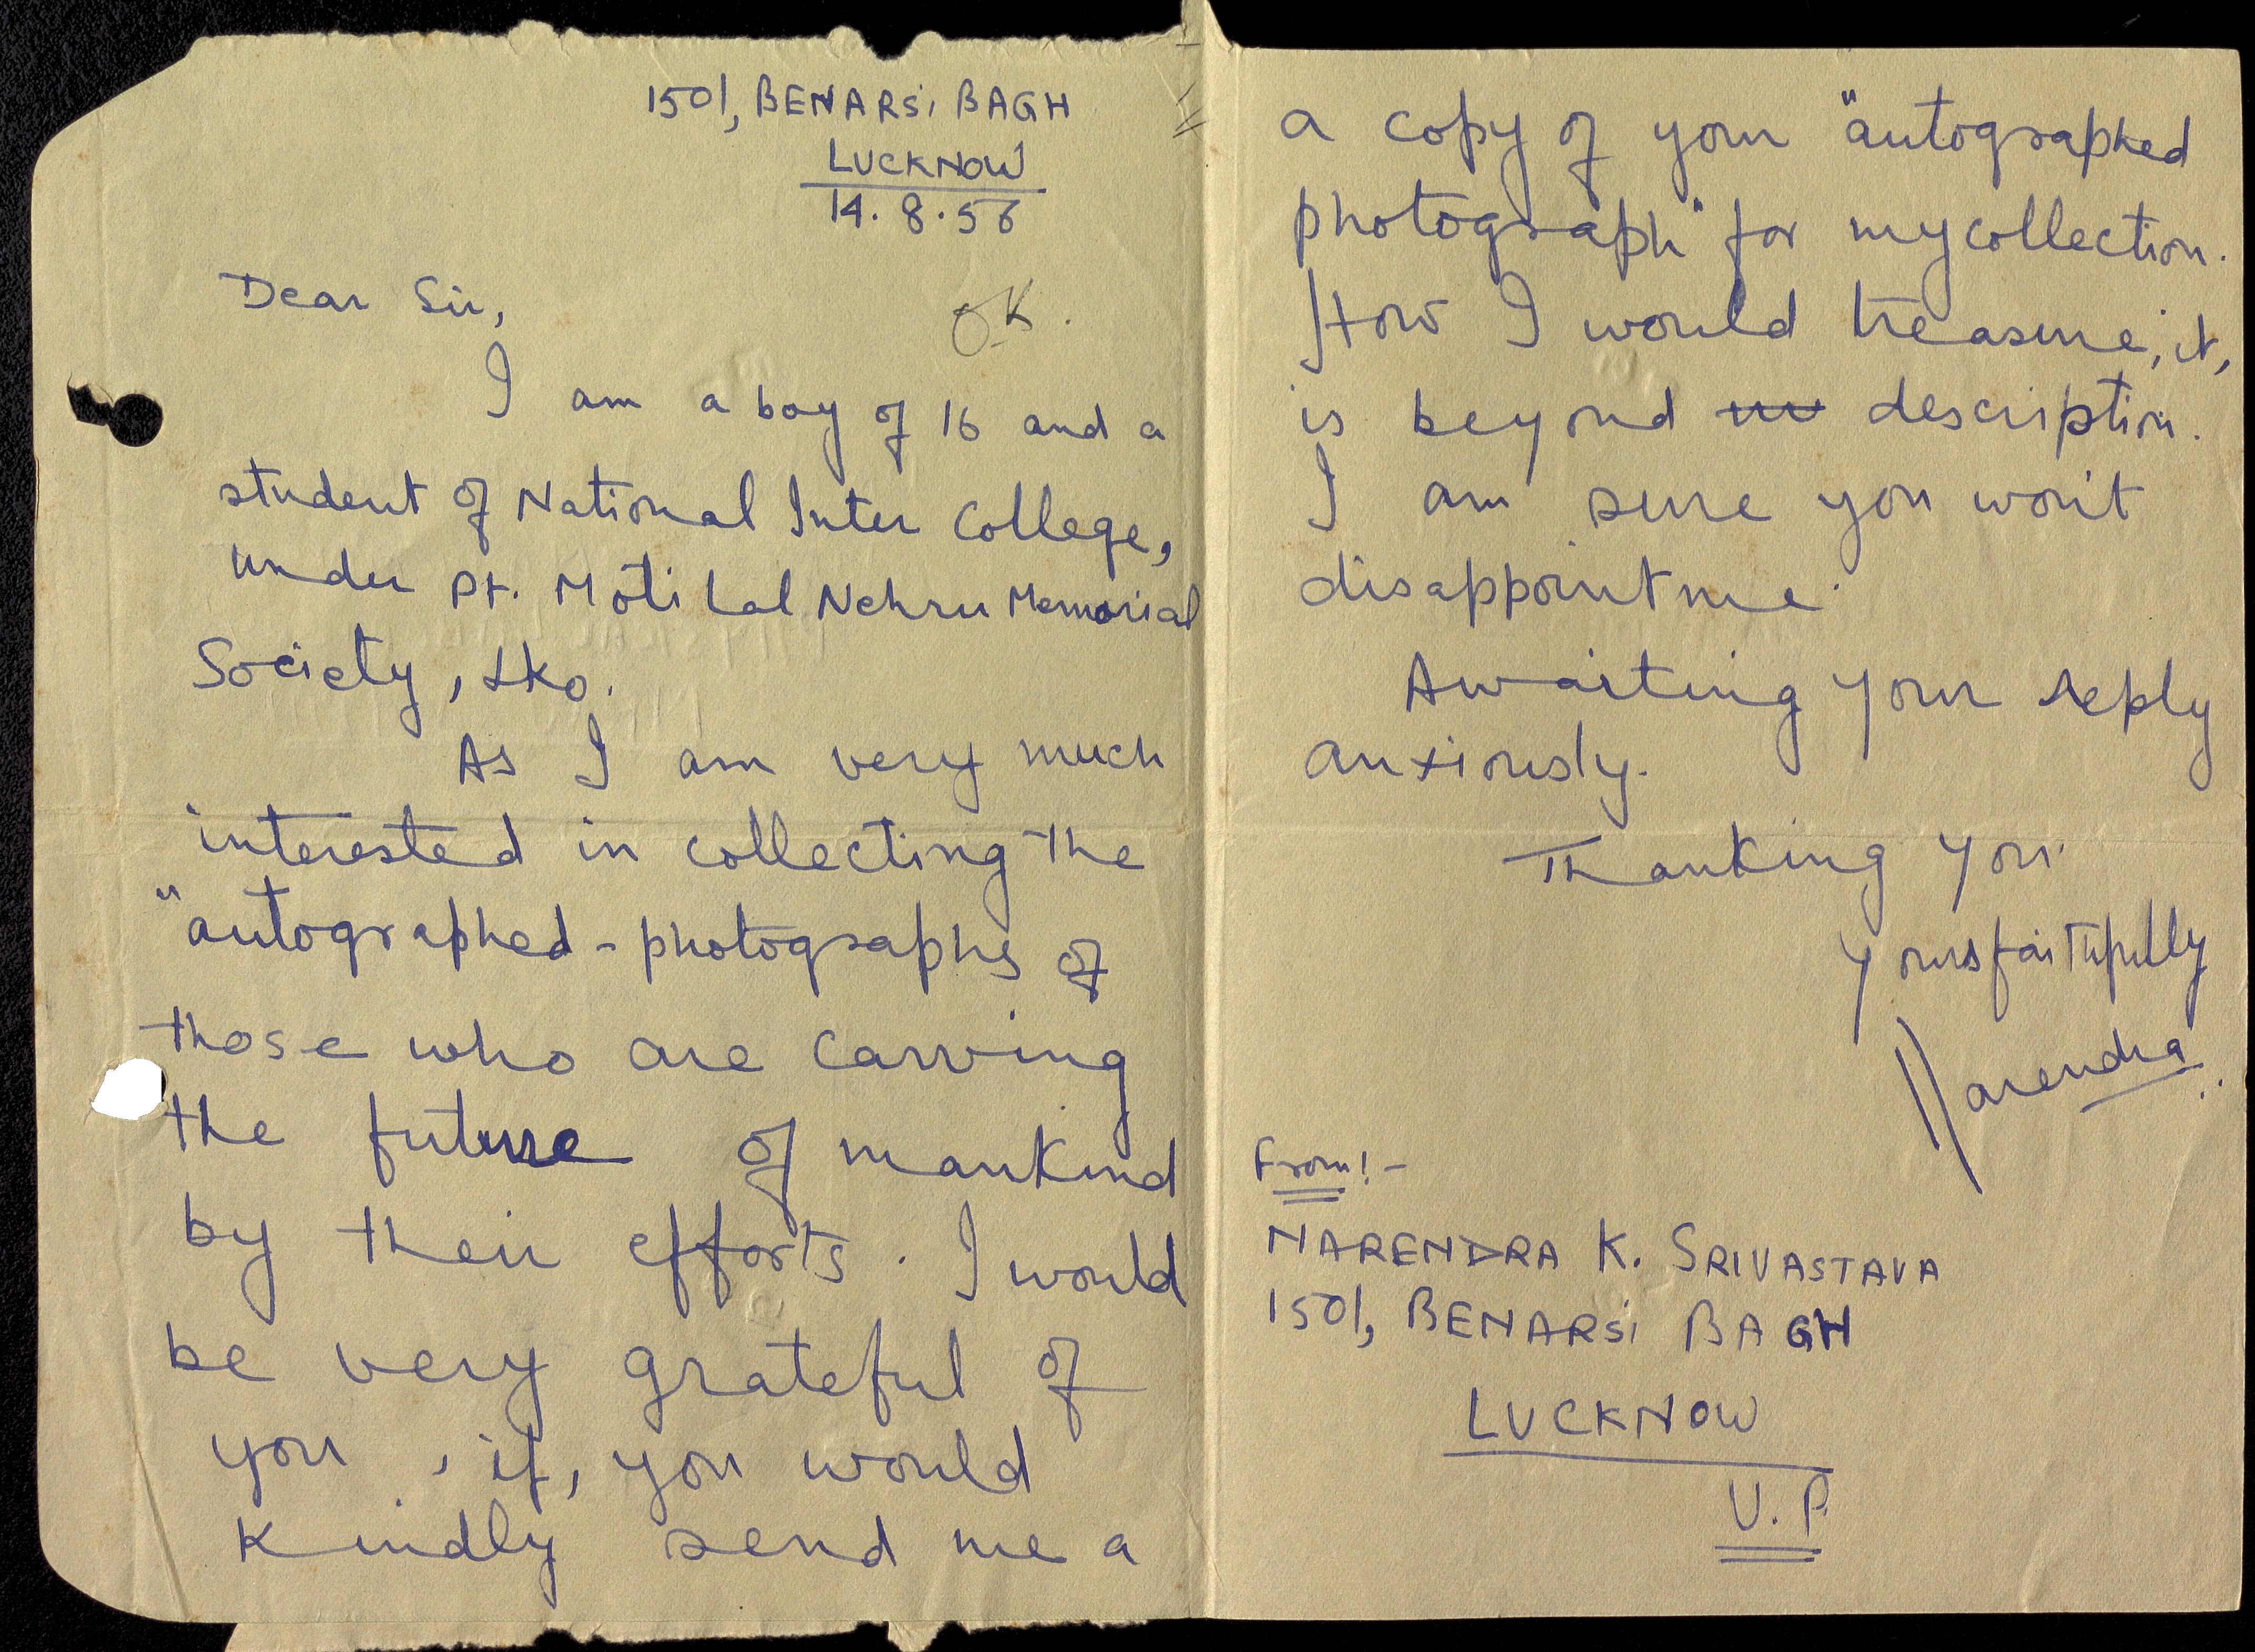 150/, BENARSI BAGH
LUCKNOW
14.8.56
Dear Sir,
OK.
I am a boy of 16 and a
student of National Inter College,
under Pt. Moti Lal Nehru Memorial
Society, Lko.
As I am very much
interested in collecting the
"autographed - photographs of
those who are carving
the future of mankind
by their efforts. I would
be very grateful of
you, if, you would
kindly send me a
a copy of your "autographed
photograph" for my collection.
How I would treasure, it,
is beyond description.
I am sure you won't
disappoint me.
Awaiting your reply
anxiously.
Thanking you.
Yours faithfully
Narendra.
From:-
NARENDRA K. SRIVASTAVA
150/, BENARSI BAGH
LUCKNOW
U.P.